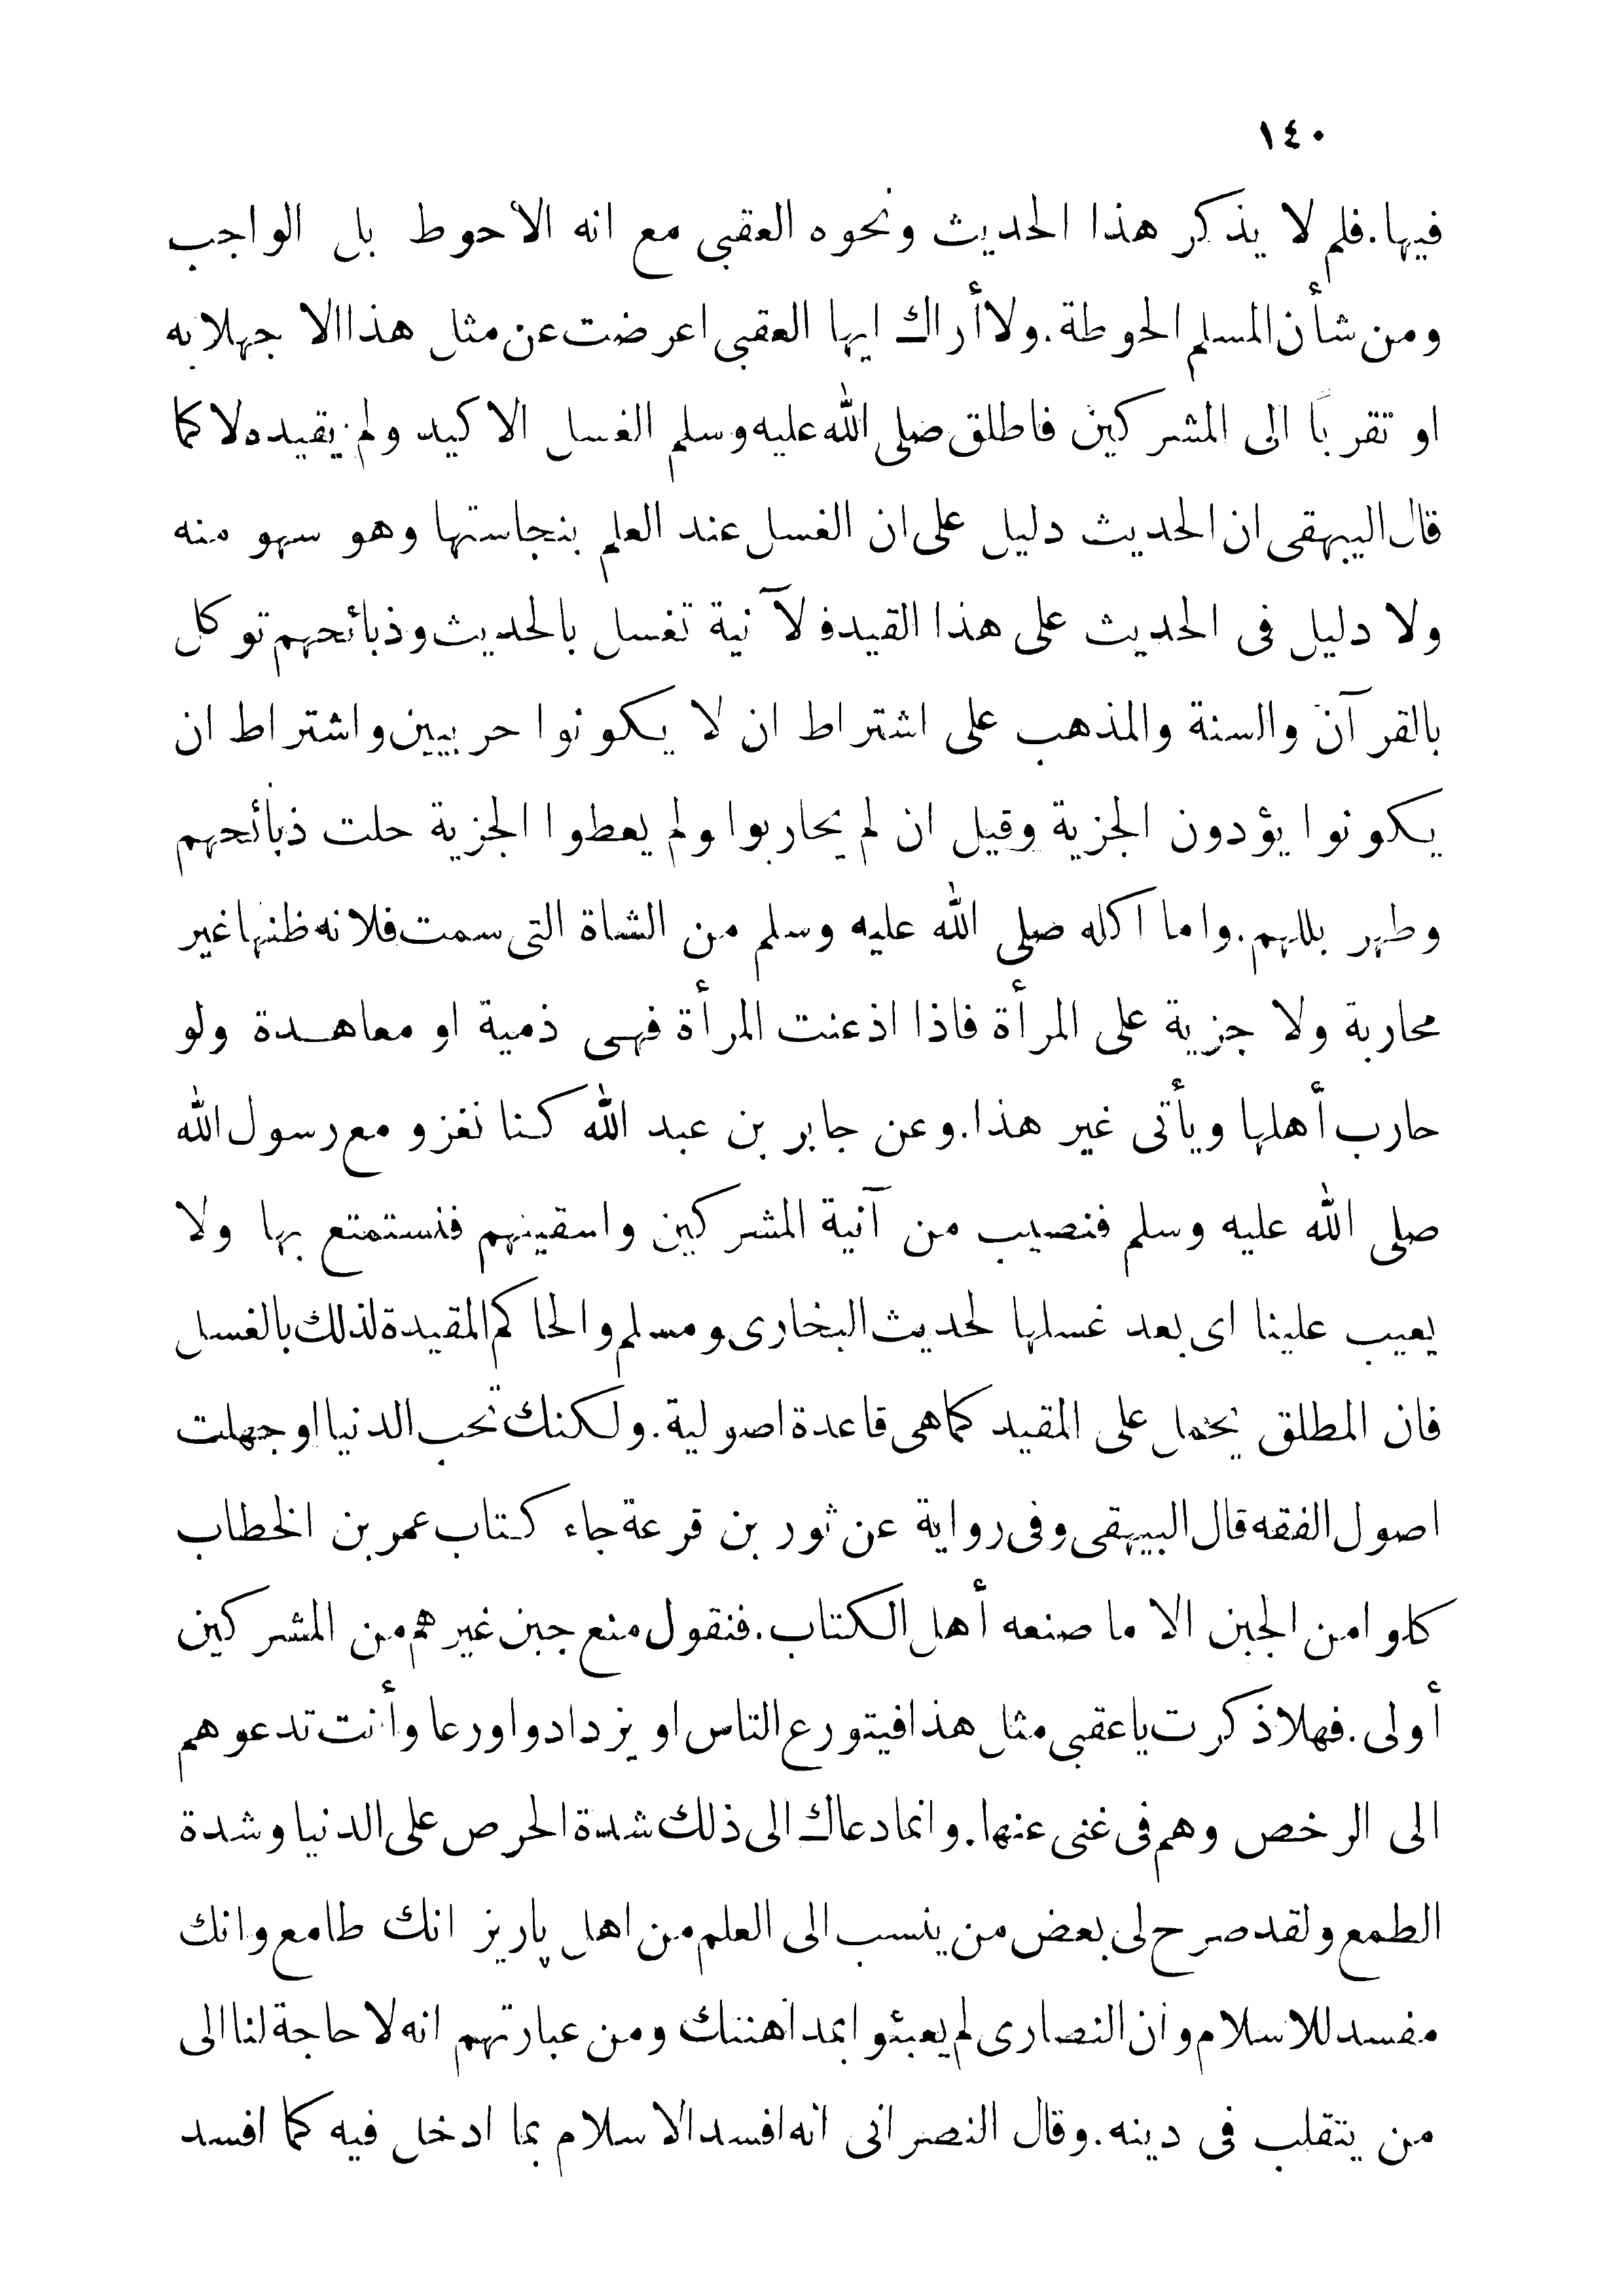 ١٤٠
فيها. فلم لا يذكر هذا الحديث ونحوه العقبى مع انه الأحوط بل الواجب
ومن شأن المسلم الحوطة. ولا أراك ايها العقبى اعرضت عن مثل هذا الا جهلا به
او تقربًا الى المشركين فاطلق صلى الله عليه وسلم الغسل الاكيد ولم يقيده لا كما
قال البيهقى ان الحديث دليل على ان الغسل عند العلم بنجاستها وهو سهو منه
ولا دليل فى الحديث على هذا القيد فلآنية تغسل بالحديث وذبائحهم توكل
بالقرآن والسنة والمذهب على اشتراط ان لا يكونوا حربيين واشتراط ان
يكونوا يؤدون الجزية وقيل ان لم يحاربوا ولم يعطوا الجزية حلت ذبائحهم
وطهر بللهم. واما اكله صلى الله عليه وسلم من الشاة التى سمت فلانه ظنها غير
محاربة ولا جزية على المرأة فاذا اذعنت المرأة فهى ذمية او معاهدة ولو
حارب أهلها ويأتى غير هذا. وعن جابر بن عبد الله كنا نغزو مع رسول الله
صلى الله عليه وسلم فنصيب من آنية المشركين واسقيتهم فنستمتع بها ولا
يعيب علينا اى بعد غسلها لحديث البخارى ومسلم والحاكم المقيدة لذلك بالغسل
فان المطلق يحمل على المقيد كما هى قاعدة اصولية. ولكنك تحب الدنيا او جهلت
اصول الفقه قال البيهقى وفى رواية عن ثور بن قرعة جاء كتاب عمر بن الخطاب
كلوا من الجبن الا ما صنعه أهل الكتاب. فنقول منع جبن غيرهم من المشركين
أولى. فهلا ذكرت يا عقبى مثل هذا فيتورع الناس او يزدادوا ورعا وأنت تدعوهم
الى الرخص وهم فى غنى عنها. وانما دعاك الى ذلك شدة الحرص على الدنيا وشدة
الطمع ولقد صرح لى بعض من ينسب الى العلم من اهل پاريز انك طامع وانك
مفسد للاسلام وان النصارى لم يعبئوا بمداهنتك ومن عبارتهم انه لا حاجة لنا الى
من يتقلب فى دينه. وقال النصرانى انه افسد الاسلام بما ادخل فيه كما افسد